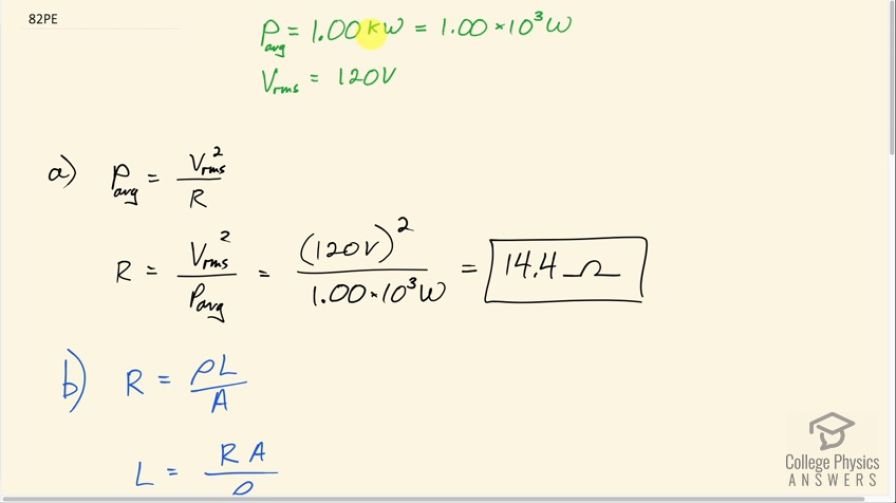 82PE
P_avg = 1.00 kW = 1.00 × 10³ W
V_rms = 120V
a) P_avg = V_rms² / R
R = V_rms² / P_avg = (120V)² / 1.00 × 10³ W = 14.4 Ω
b) R = ρL / A
L = RA / ρ
College Physics
ANSWERS